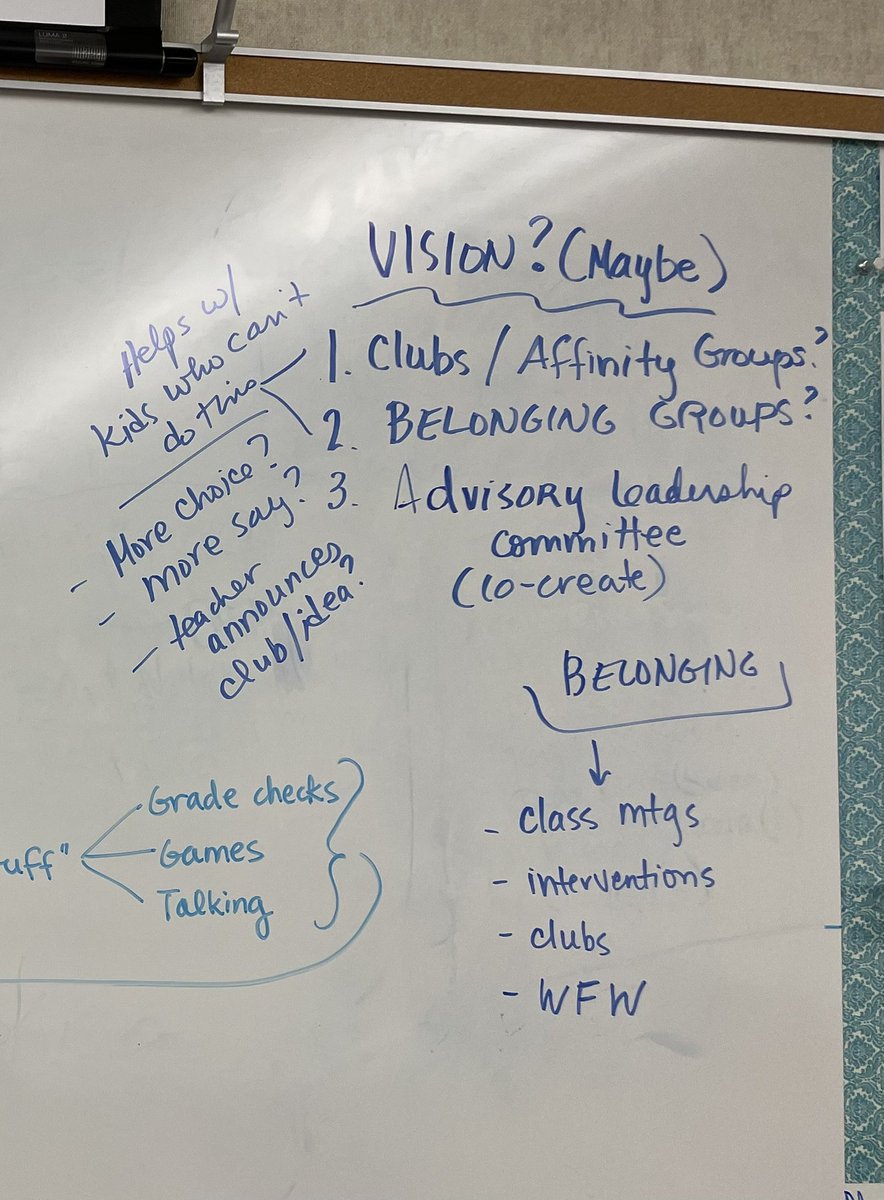 VISION? (Maybe)
1. Clubs / Affinity Groups?
2. BELONGING GROUPS?
3. Advisory leadership
committee
(co-create)
Helps w/
kids who can't
do this
- More choice?
- more say?
- teacher
announces
club/idea?
BELONGING
- class mtgs
- interventions
- clubs
- WFW
uff"
Grade checks
Games
Talking